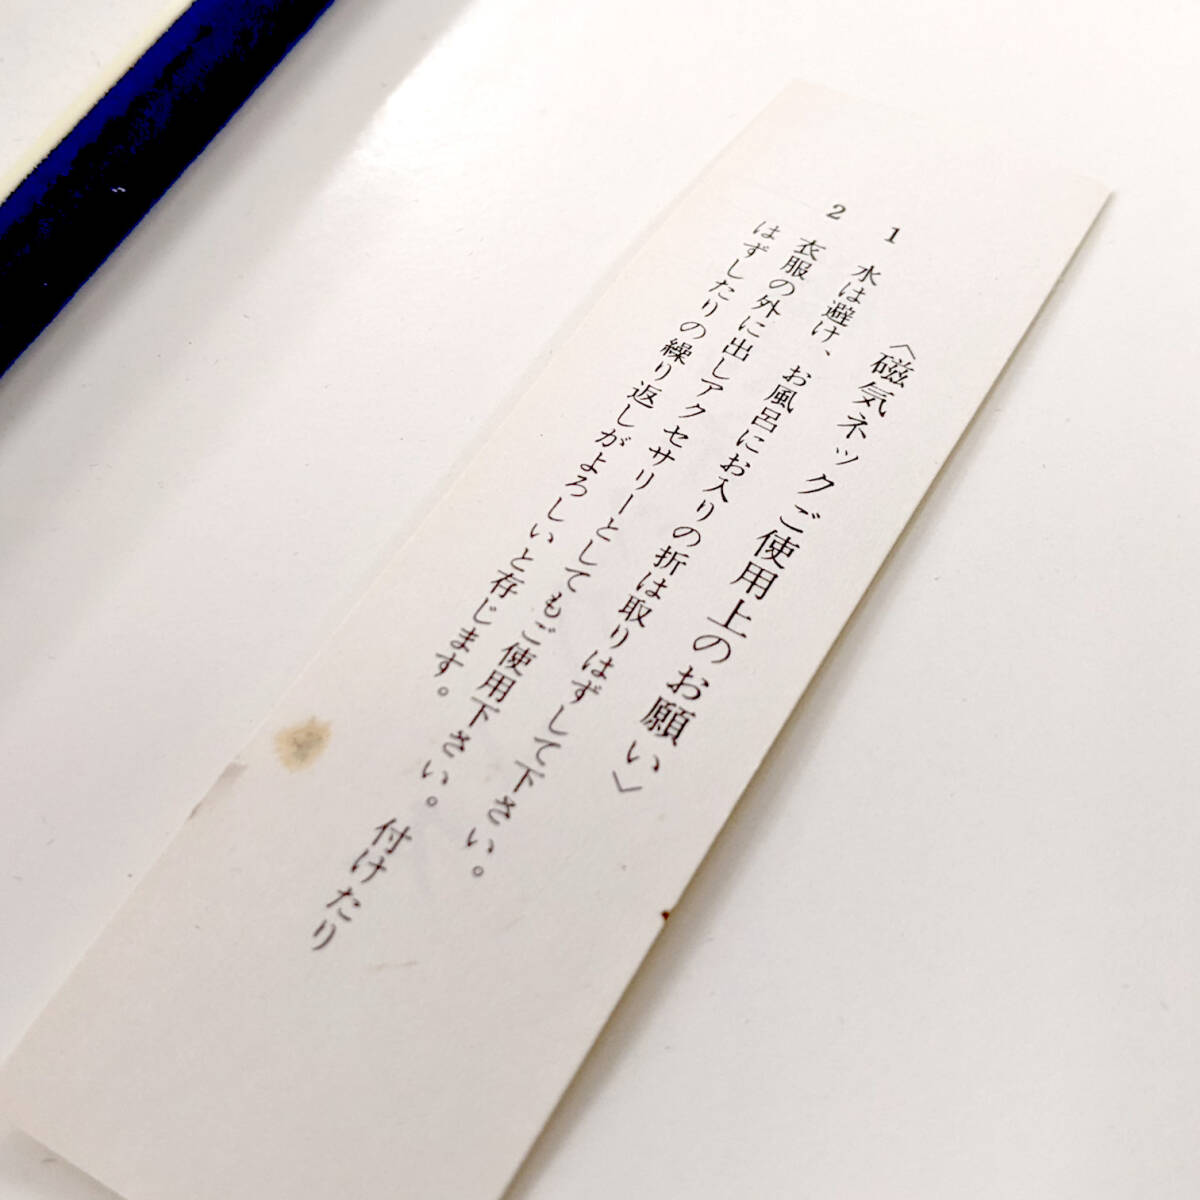 〈磁気ネックご使用上のお願い〉
1 水は避け、お風呂にお入りの折は取りはずして下さい。
2 衣服の外に出しアクセサリーとしてもご使用下さい。付けたり
はずしたりの繰り返しがよろしいと存じます。